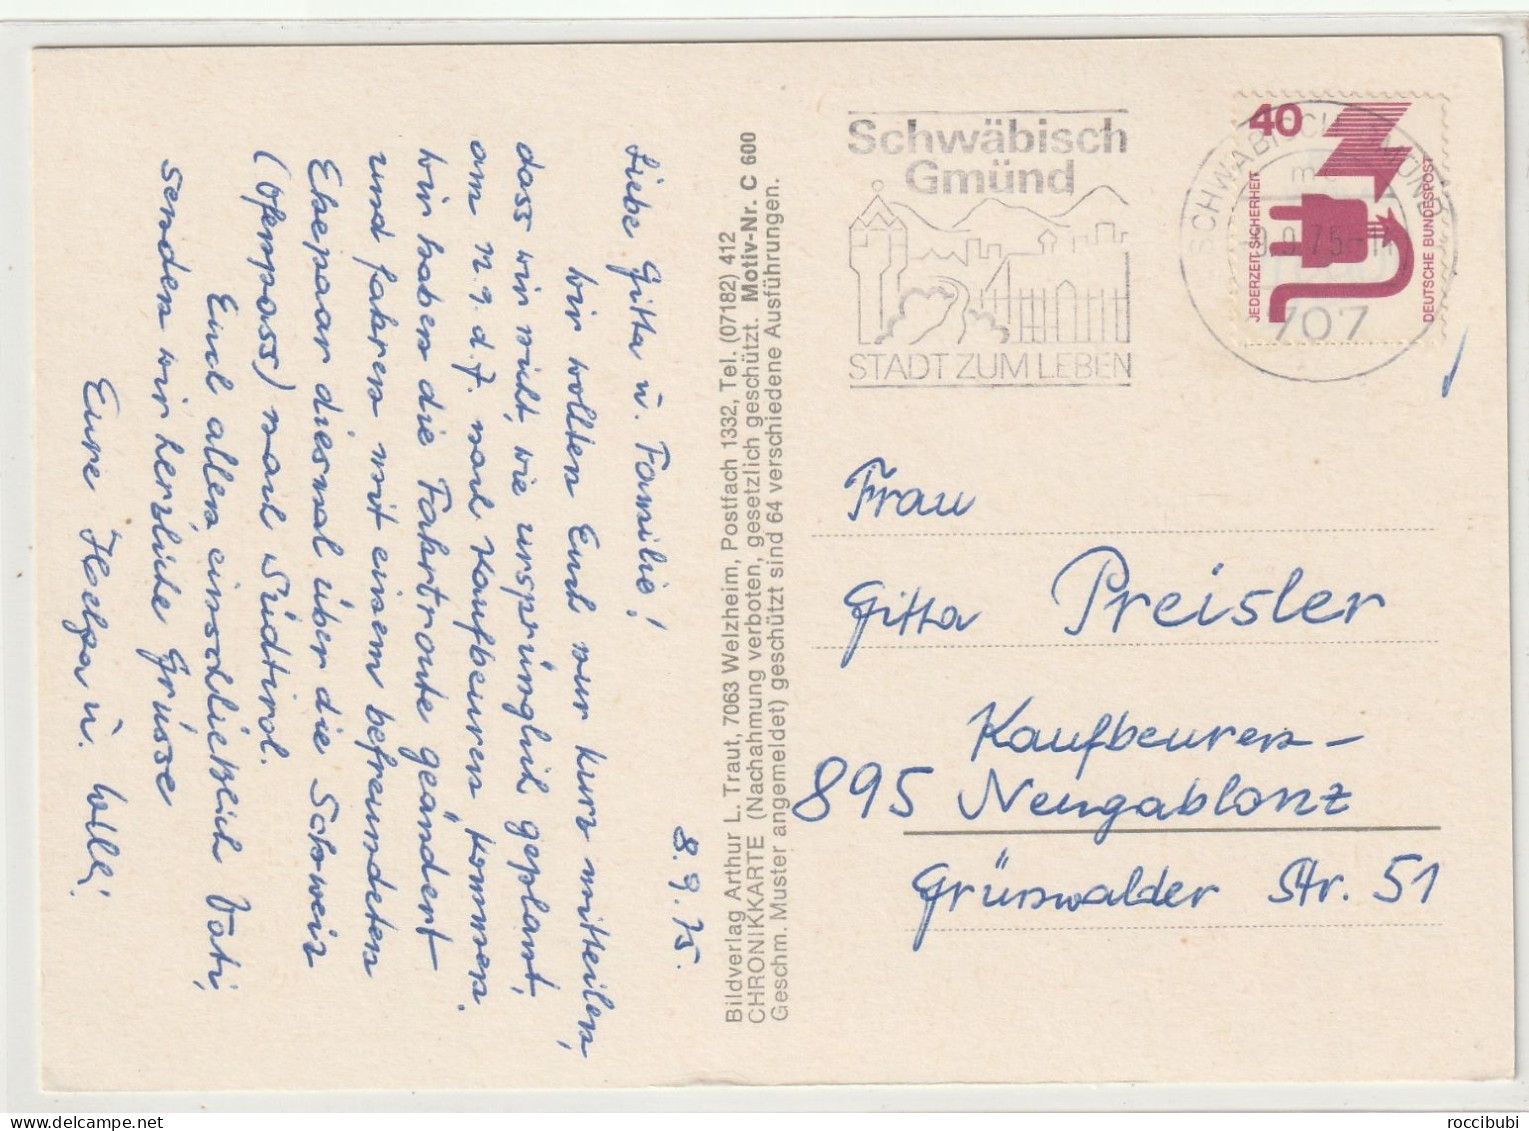 8.9.75.
Liebe Gitta u. Familie!
Wir wollten Euch nur kurz mitteilen,
dass wir nicht, wie ursprünglich geplant,
am 12.9. d. J. nach Kaufbeuren kommen.
Wir haben die Fahrtroute geändert
und fahren mit einem befreundeten
Ehepaar diesmal über die Schweiz
(Ofenpass) nach Südtirol.
Euch allen einschließlich Vati,
senden wir herzliche Grüsse
Eure Helga u. Willi.
Bildverlag Arthur L. Traut, 7063 Welzheim, Postfach 1332, Tel. (07182) 412
CHRONIKKARTE (Nachahmung verboten, gesetzlich geschützt. Motiv-Nr. C 600
Geschm. Muster angemeldet) geschützt sind 64 verschiedene Ausführungen.
Schwäbisch
Gmünd
STADT ZUM LEBEN
SCHWÄBISCH GMÜND
9.9.75-11
707
40
JEDERZEIT SICHERHEIT
DEUTSCHE BUNDESPOST
Frau
Gitta Preisler
Kaufbeuren-
895 Neugablonz
Grünwalder Str. 51
roccibubi